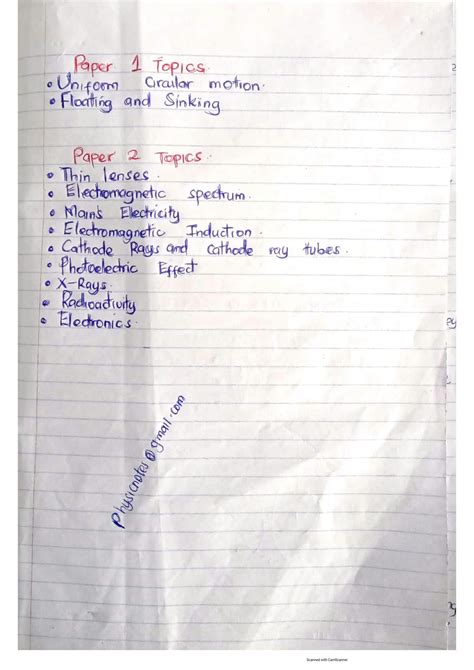 Paper 1 Topics.
• Uniform Circular motion.
• Floating and Sinking
Paper 2 Topics.
• Thin lenses.
• Electromagnetic spectrum.
• Mains Electricity
• Electromagnetic Induction.
• Cathode Rays and Cathode ray tubes.
• Photoelectric Effect
• X-Rays.
• Radioactivity
• Electronics.
Physicnotes@gmail.com
Scanned with CamScanner